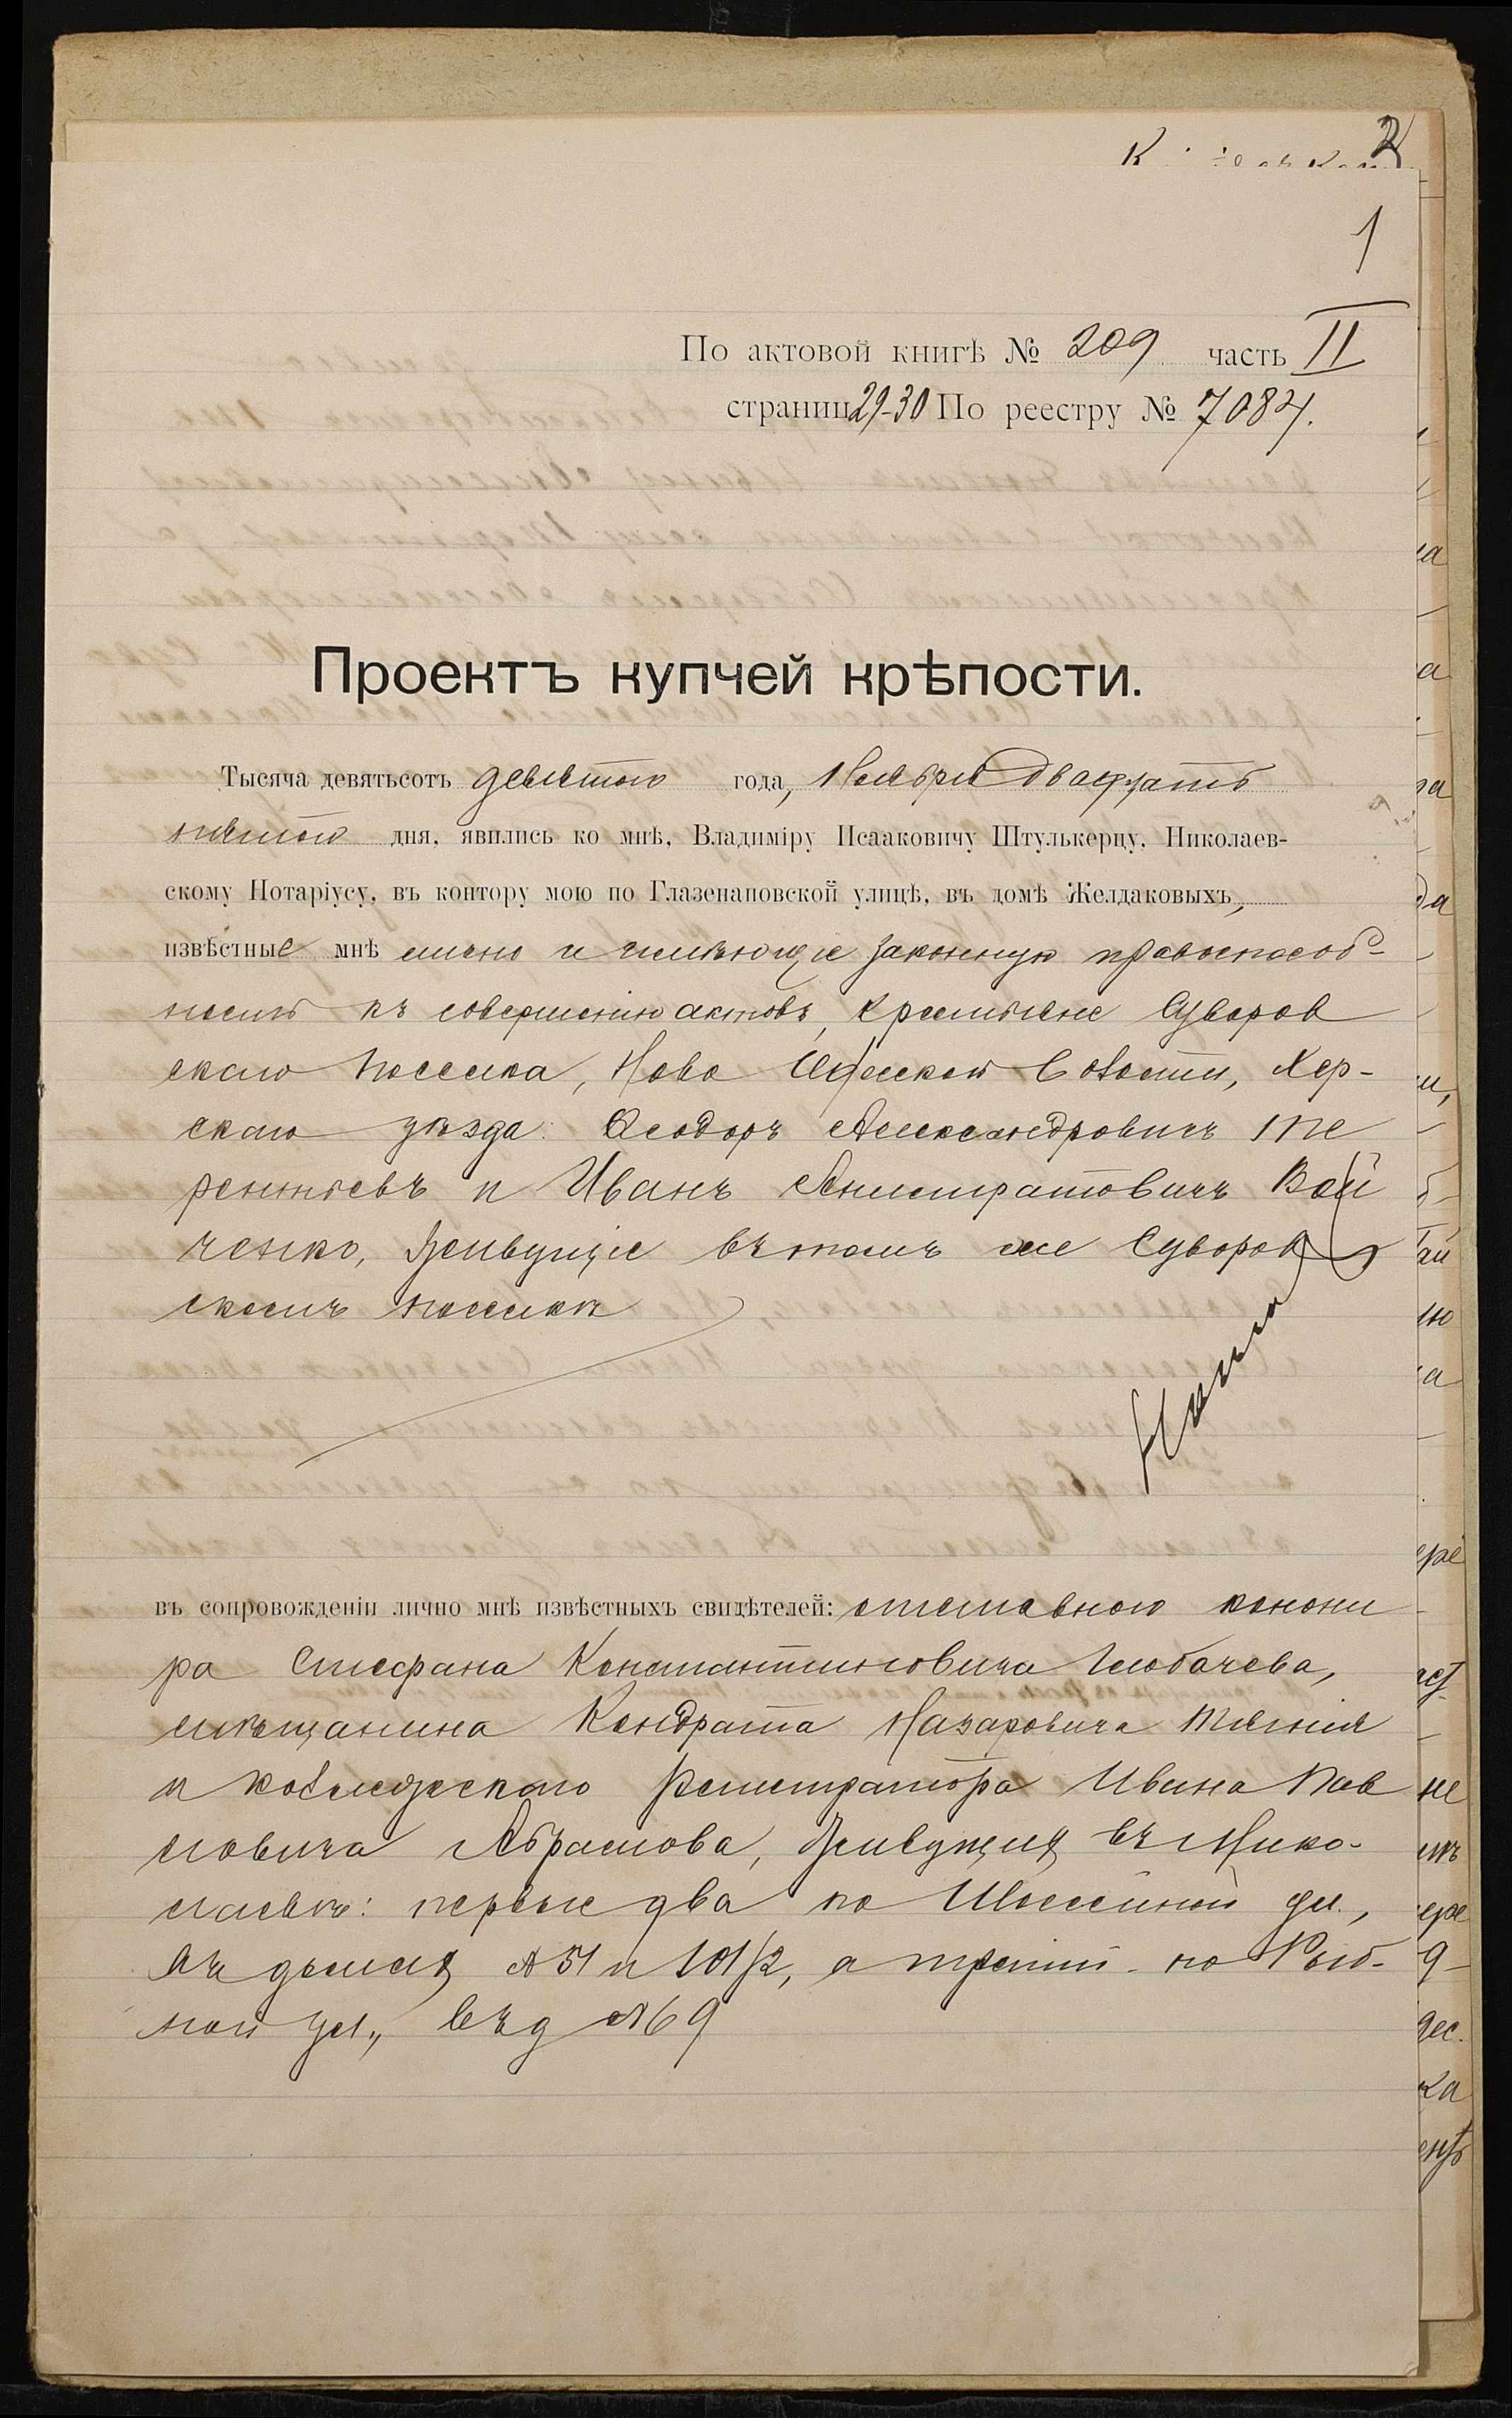 2
1
По актовой книгѣ № 209 часть II
страниц 29-30 По реестру № 7084.
Проектъ купчей крѣпости.
Тысяча девятьсотъ девятаго года, Ноября двадцать
пятаго дня, явились ко мнѣ, Владиміру Исааковичу Штулькерцу, Николаев-
скому Нотаріусу, въ контору мою по Глазенаповской улицѣ, въ домѣ Желдаковыхъ,
извѣстные мнѣ лично и имѣющіе законную правоспособ-
ность къ совершенію актовъ, крестьяне Суворов
скаго поселка, Ново волости, Хер-
скаго уѣзда: Ѳеодоръ Александровичъ Те
рентьевъ и Иванъ Анистратовичъ Вой
ченко, живущіе въ томъ же Суворов
скомъ поселкѣ
въ сопровожденіи лично мнѣ извѣстныхъ свидѣтелей: отставного канони
ра Стефана Константиновича Глобачева,
мѣщанина Кондрата Назаровича Тягнія
и коллежскаго регистратора Ивана Пав
ловича Абрамова, живущихъ въ Нико-
лаевѣ: первые два по Шоссейной ул.,
въ домахъ №51 и 101/2, а третій - по Рыб-
ной ул., въ д №69